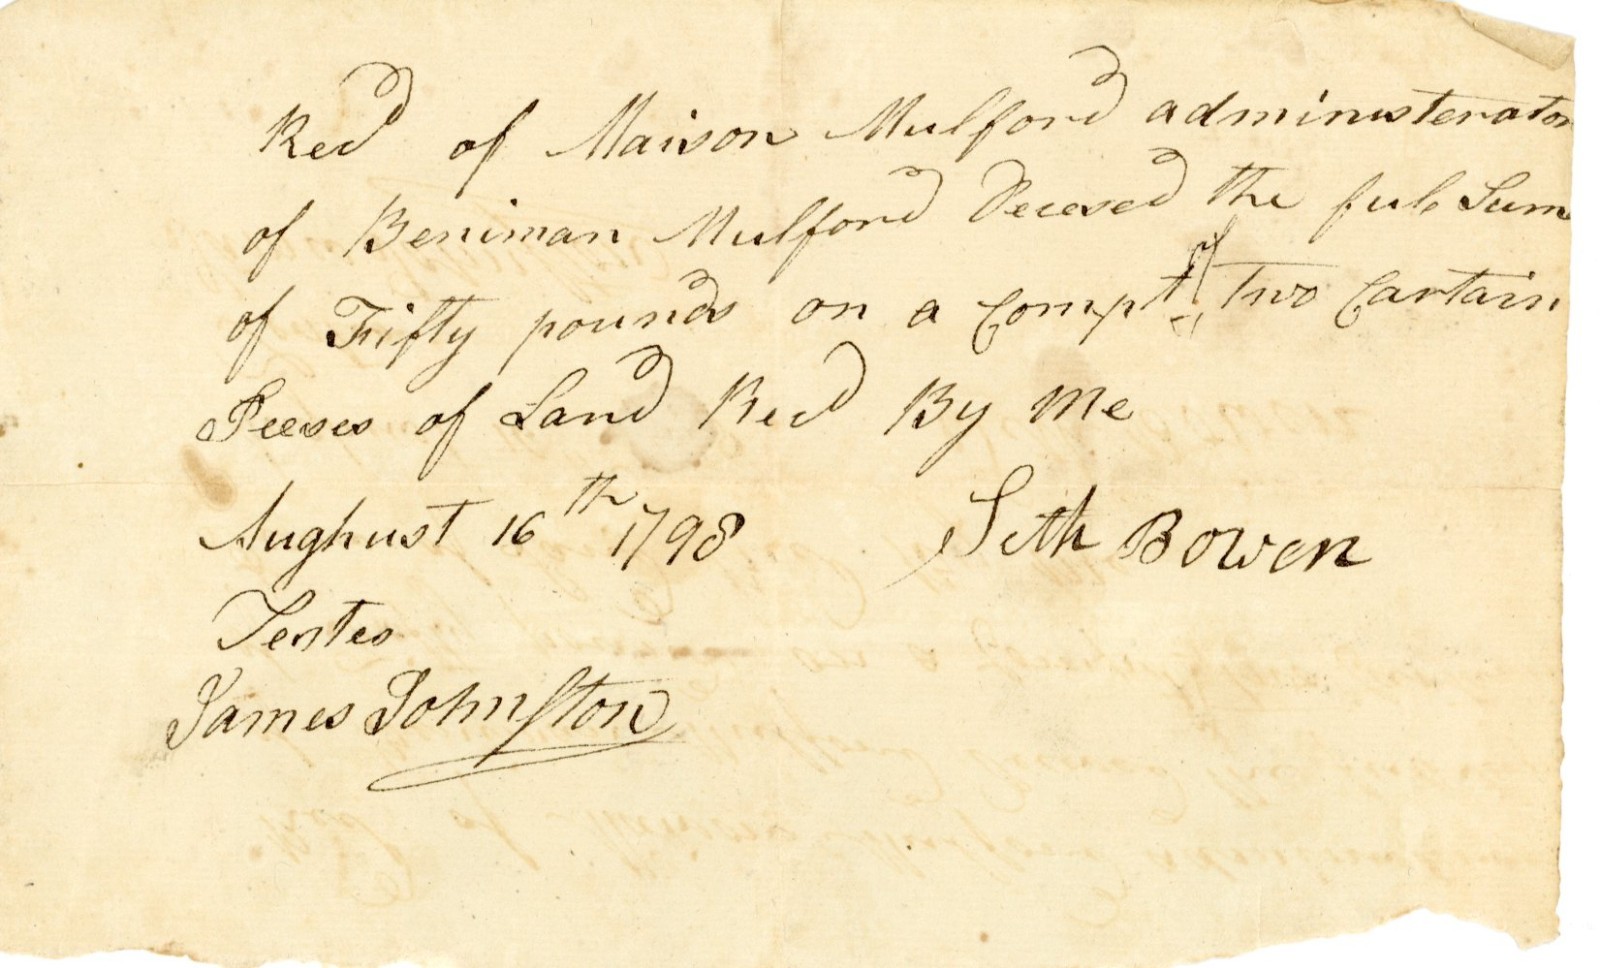 Recd of Maison Mulford administerator
of Beniman Mulford Decesed the full Sum
of Fifty pounds on a Compt of Two Cartain
Peeses of Land Recd By Me
Aughust 16th 1798 Seth Bowen
Testes
James Johnston